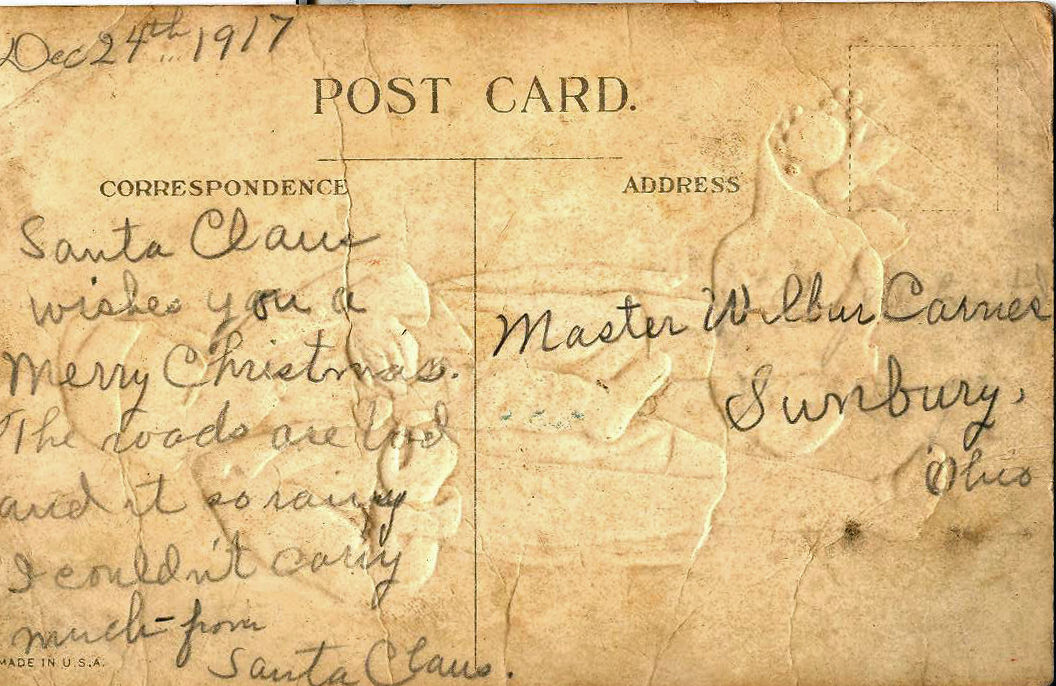 Dec 24th 1917
POST CARD.
CORRESPONDENCE
Santa Claus
wishes you a
Merry Christmas.
The roads are bad
and it so rainy
I couldn't carry
much from
Santa Claus.
MADE IN U.S.A.
ADDRESS
Master Wilbur Carnes
Sunbury,
Ohio